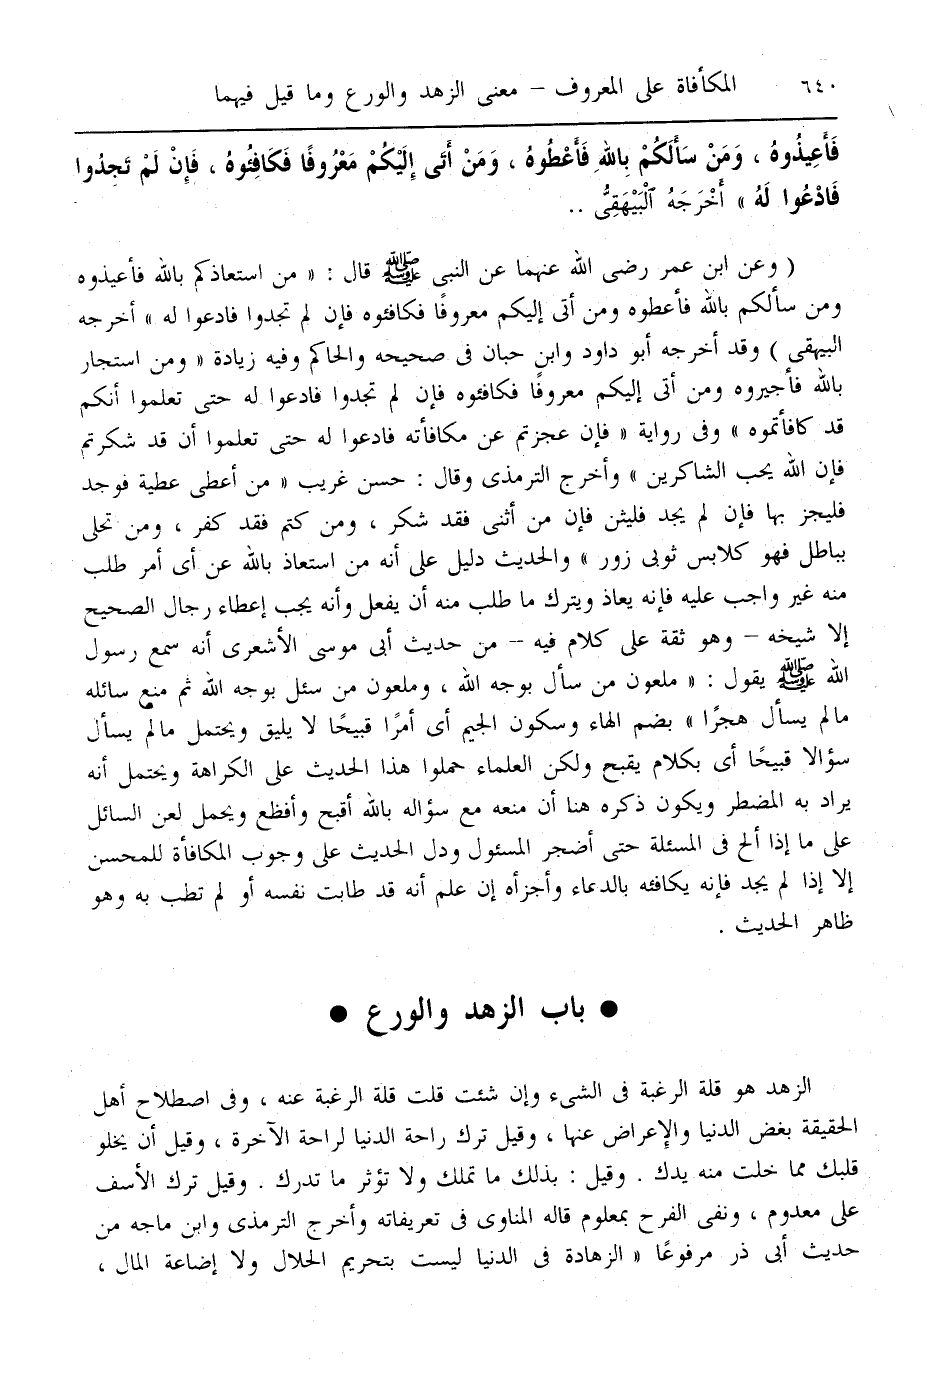 ٦٤٠ المكأفاة على المعروف – معنى الزهد والورع وما قيل فيهما
فَأَعِيذُوهُ ، وَمَنْ سَأَلَكُمْ بِاللهِ فَأَعْطُوهُ ، وَمَنْ أَتَى إِلَيْكُمْ مَعْرُوفًا فَكَافِئُوهُ ، فَإِنْ لَمْ تَجِدُوا
فَادْعُوا لَهُ » أَخْرَجَهُ ٱلْبَيْهَقِىُّ ..
( وعن ابن عمر رضى الله عنهما عن النبى ﷺ قال : « من استعاذكم بالله فأعيذوه
ومن سألكم بالله فأعطوه ومن أتى إليكم معروفًا فكافئوه فإن لم تجدوا فادعوا له » أخرجه
البيهقى ) وقد أخرجه أبو داود وابن حبان فى صحيحه والحاكم وفيه زيادة « ومن استجار
بالله فأجيروه ومن أتى إليكم معروفًا فكافئوه فإن لم تجدوا فادعوا له حتى تعلموا أنكم
قد كافأتموه » وفى رواية « فإن عجزتم عن مكافأته فادعوا له حتى تعلموا أن قد شكرتم
فإن الله يحب الشاكرين » وأخرج الترمذى وقال : حسن غريب « من أعطى عطية فوجد
فليجز بها فإن لم يجد فليثن فإن من أثنى فقد شكر ، ومن كتم فقد كفر ، ومن تحلى
بباطل فهو كلابس ثوبى زور » والحديث دليل على أنه من استعاذ بالله عن أى أمر طلب
منه غير واجب عليه فإنه يعاذ ويترك ما طلب منه أن يفعل وأنه يجب إعطاء رجال الصحيح
إلا شيخه – وهو ثقة على كلام فيه – من حديث أبى موسى الأشعرى أنه سمع رسول
الله ﷺ يقول : « ملعون من سأل بوجه الله ، وملعون من سئل بوجه الله ثم منع سائله
مالم يسأل هجرًا » بضم الهاء وسكون الجيم أى أمرًا قبيحًا لا يليق ويحتمل مالم يسأل
سؤالا قبيحًا أى بكلام يقبح ولكن العلماء حملوا هذا الحديث على الكراهة ويحتمل أنه
يراد به المضطر ويكون ذكره هنا أن منعه مع سؤاله بالله أقبح وأفظع ويحمل لعن السائل
على ما إذا ألح فى المسئلة حتى أضجر المسئول ودل الحديث على وجوب المكافأة للمحسن
إلا إذا لم يجد فإنه يكافئه بالدعاء وأجزأه إن علم أنه قد طابت نفسه أو لم تطب به وهو
ظاهر الحديث .
● باب الزهد والورع ●
الزهد هو قلة الرغبة فى الشىء وإن شئت قلت قلة الرغبة عنه ، وفى اصطلاح أهل
الحقيقة بغض الدنيا والإعراض عنها ، وقيل ترك راحة الدنيا لراحة الآخرة ، وقيل أن يخلو
قلبك مما خلت منه يدك . وقيل : بذلك ما تملك ولا تؤثر ما تدرك . وقيل ترك الأسف
على معدوم ، ونفى الفرح بمعلوم قاله المناوى فى تعريفاته وأخرج الترمذى وابن ماجه من
حديث أبى ذر مرفوعًا « الزهادة فى الدنيا ليست بتحريم الحلال ولا إضاعة المال ،